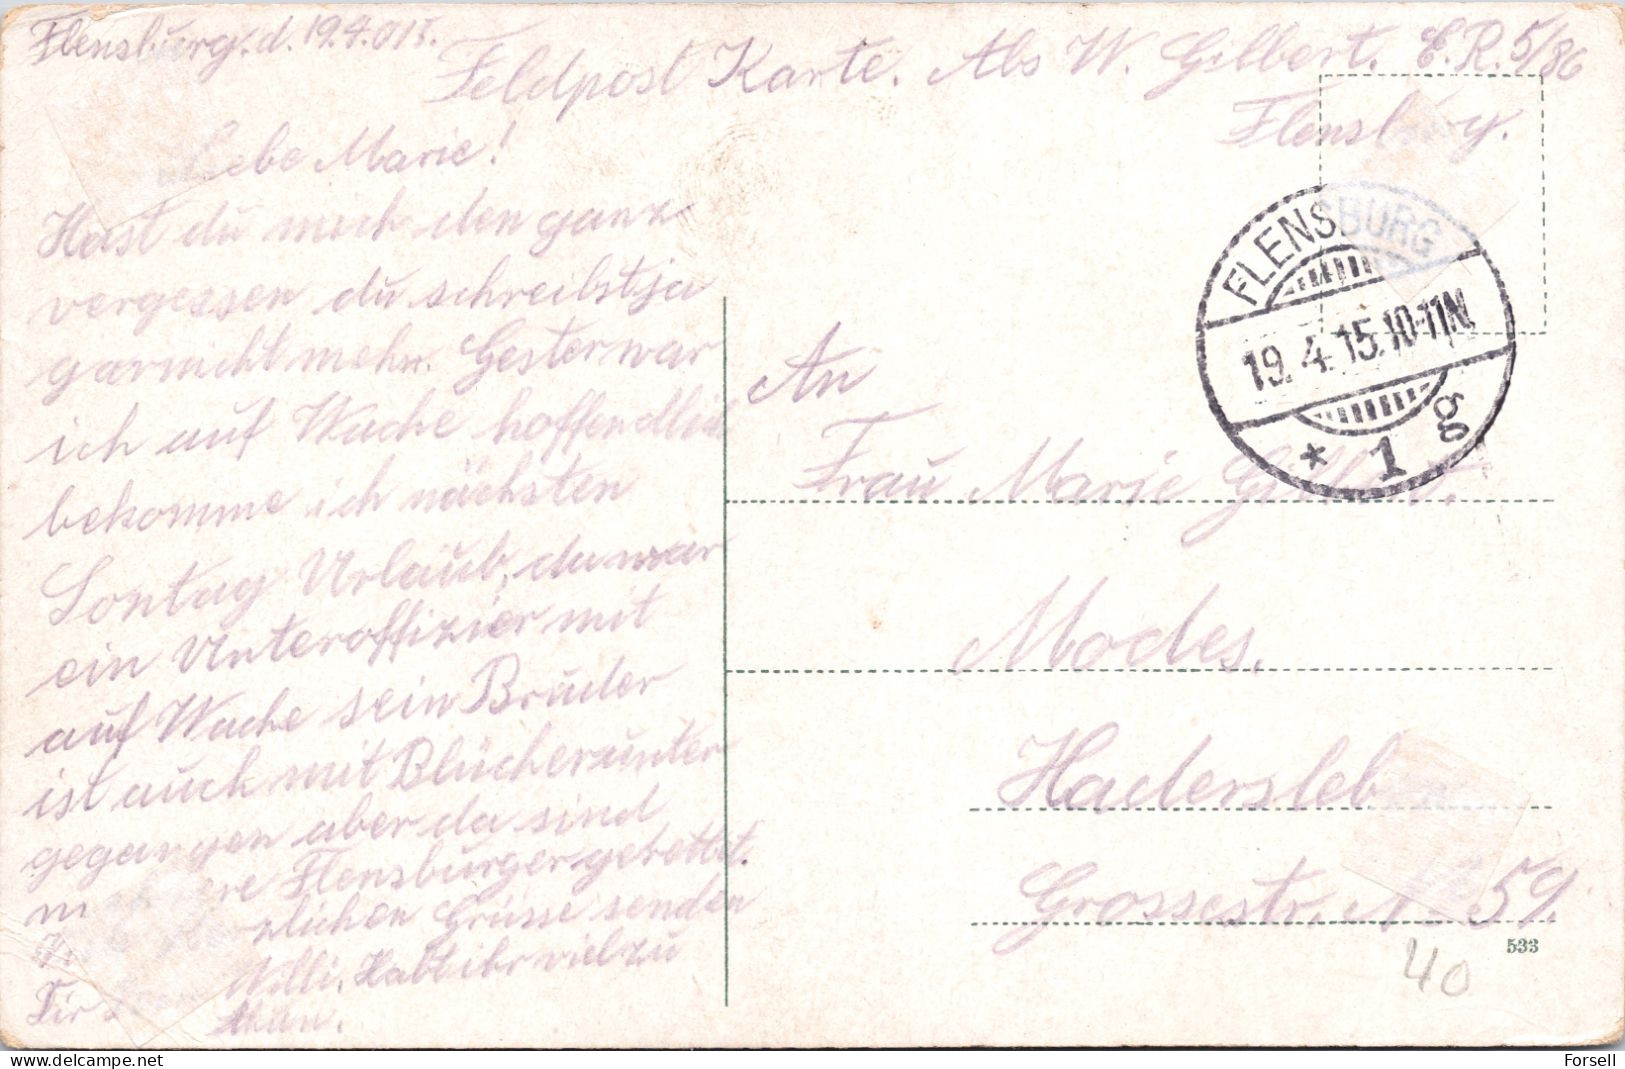 Flensburg. d. 19.4.015.
Feldpost Karte. Abs W. Gilbert. E. R. 5/86
Flensburg.
Liebe Marie!
Hast du mich den ganz
vergessen du schreibst ja
garnicht mehr. Gester war
ich auf Wache hoffendlich
bekomme ich nächsten
Sontag Urlaub, da war
ein Unteroffizier mit
auf Wache sein Bruder
ist auch mit Blücher unter
gegangen aber da sind
Flensburger gerettet.
Grüsse senden
Dir
Willi. Habt ihr viel zu
thun.
FLENSBURG
19. 4. 15. 10-11N.
* 1 g
An
Frau Marie Gilbert.
Modes.
Hadersleb
Grossestr. No 59.
533
40
delcampe.net
Forsell